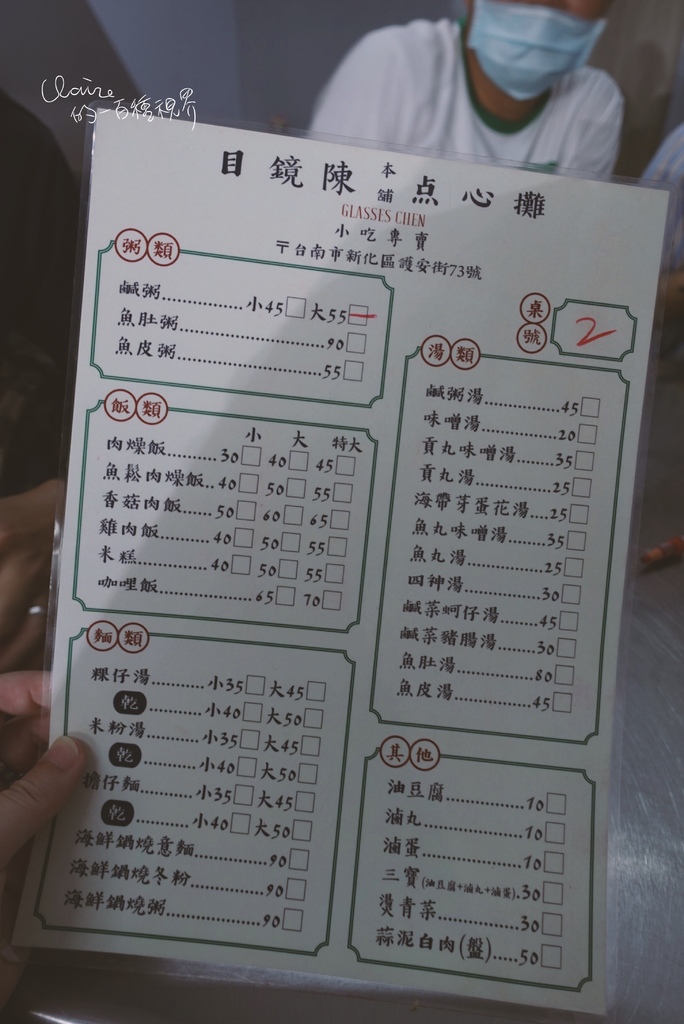 Claire
的一百種視界
目鏡陳本舖点心攤
GLASSES CHEN
小吃專賣
〒台南市新化區護安街73號
粥類
鹹粥 小45 大55
魚肚粥 90
魚皮粥 55
桌號 2
飯類
小 大 特大
肉燥飯 30 40 45
魚鬆肉燥飯 40 50 55
香菇肉飯 50 60 65
雞肉飯 40 50 55
米糕 40 50 55
咖哩飯 65 70
麵類
粿仔湯 小35 大45
乾 小40 大50
米粉湯 小35 大45
乾 小40 大50
擔仔麵 小35 大45
乾 小40 大50
海鮮鍋燒意麵 90
海鮮鍋燒冬粉 90
海鮮鍋燒粥 90
湯類
鹹粥湯 45
味噌湯 20
貢丸味噌湯 35
貢丸湯 25
海帶芽蛋花湯 25
魚丸味噌湯 35
魚丸湯 25
四神湯 30
鹹菜蚵仔湯 45
鹹菜豬腸湯 30
魚肚湯 80
魚皮湯 45
其他
油豆腐 10
滷丸 10
滷蛋 10
三寶(油豆腐+滷丸+滷蛋) 30
燙青菜 30
蒜泥白肉(盤) 50